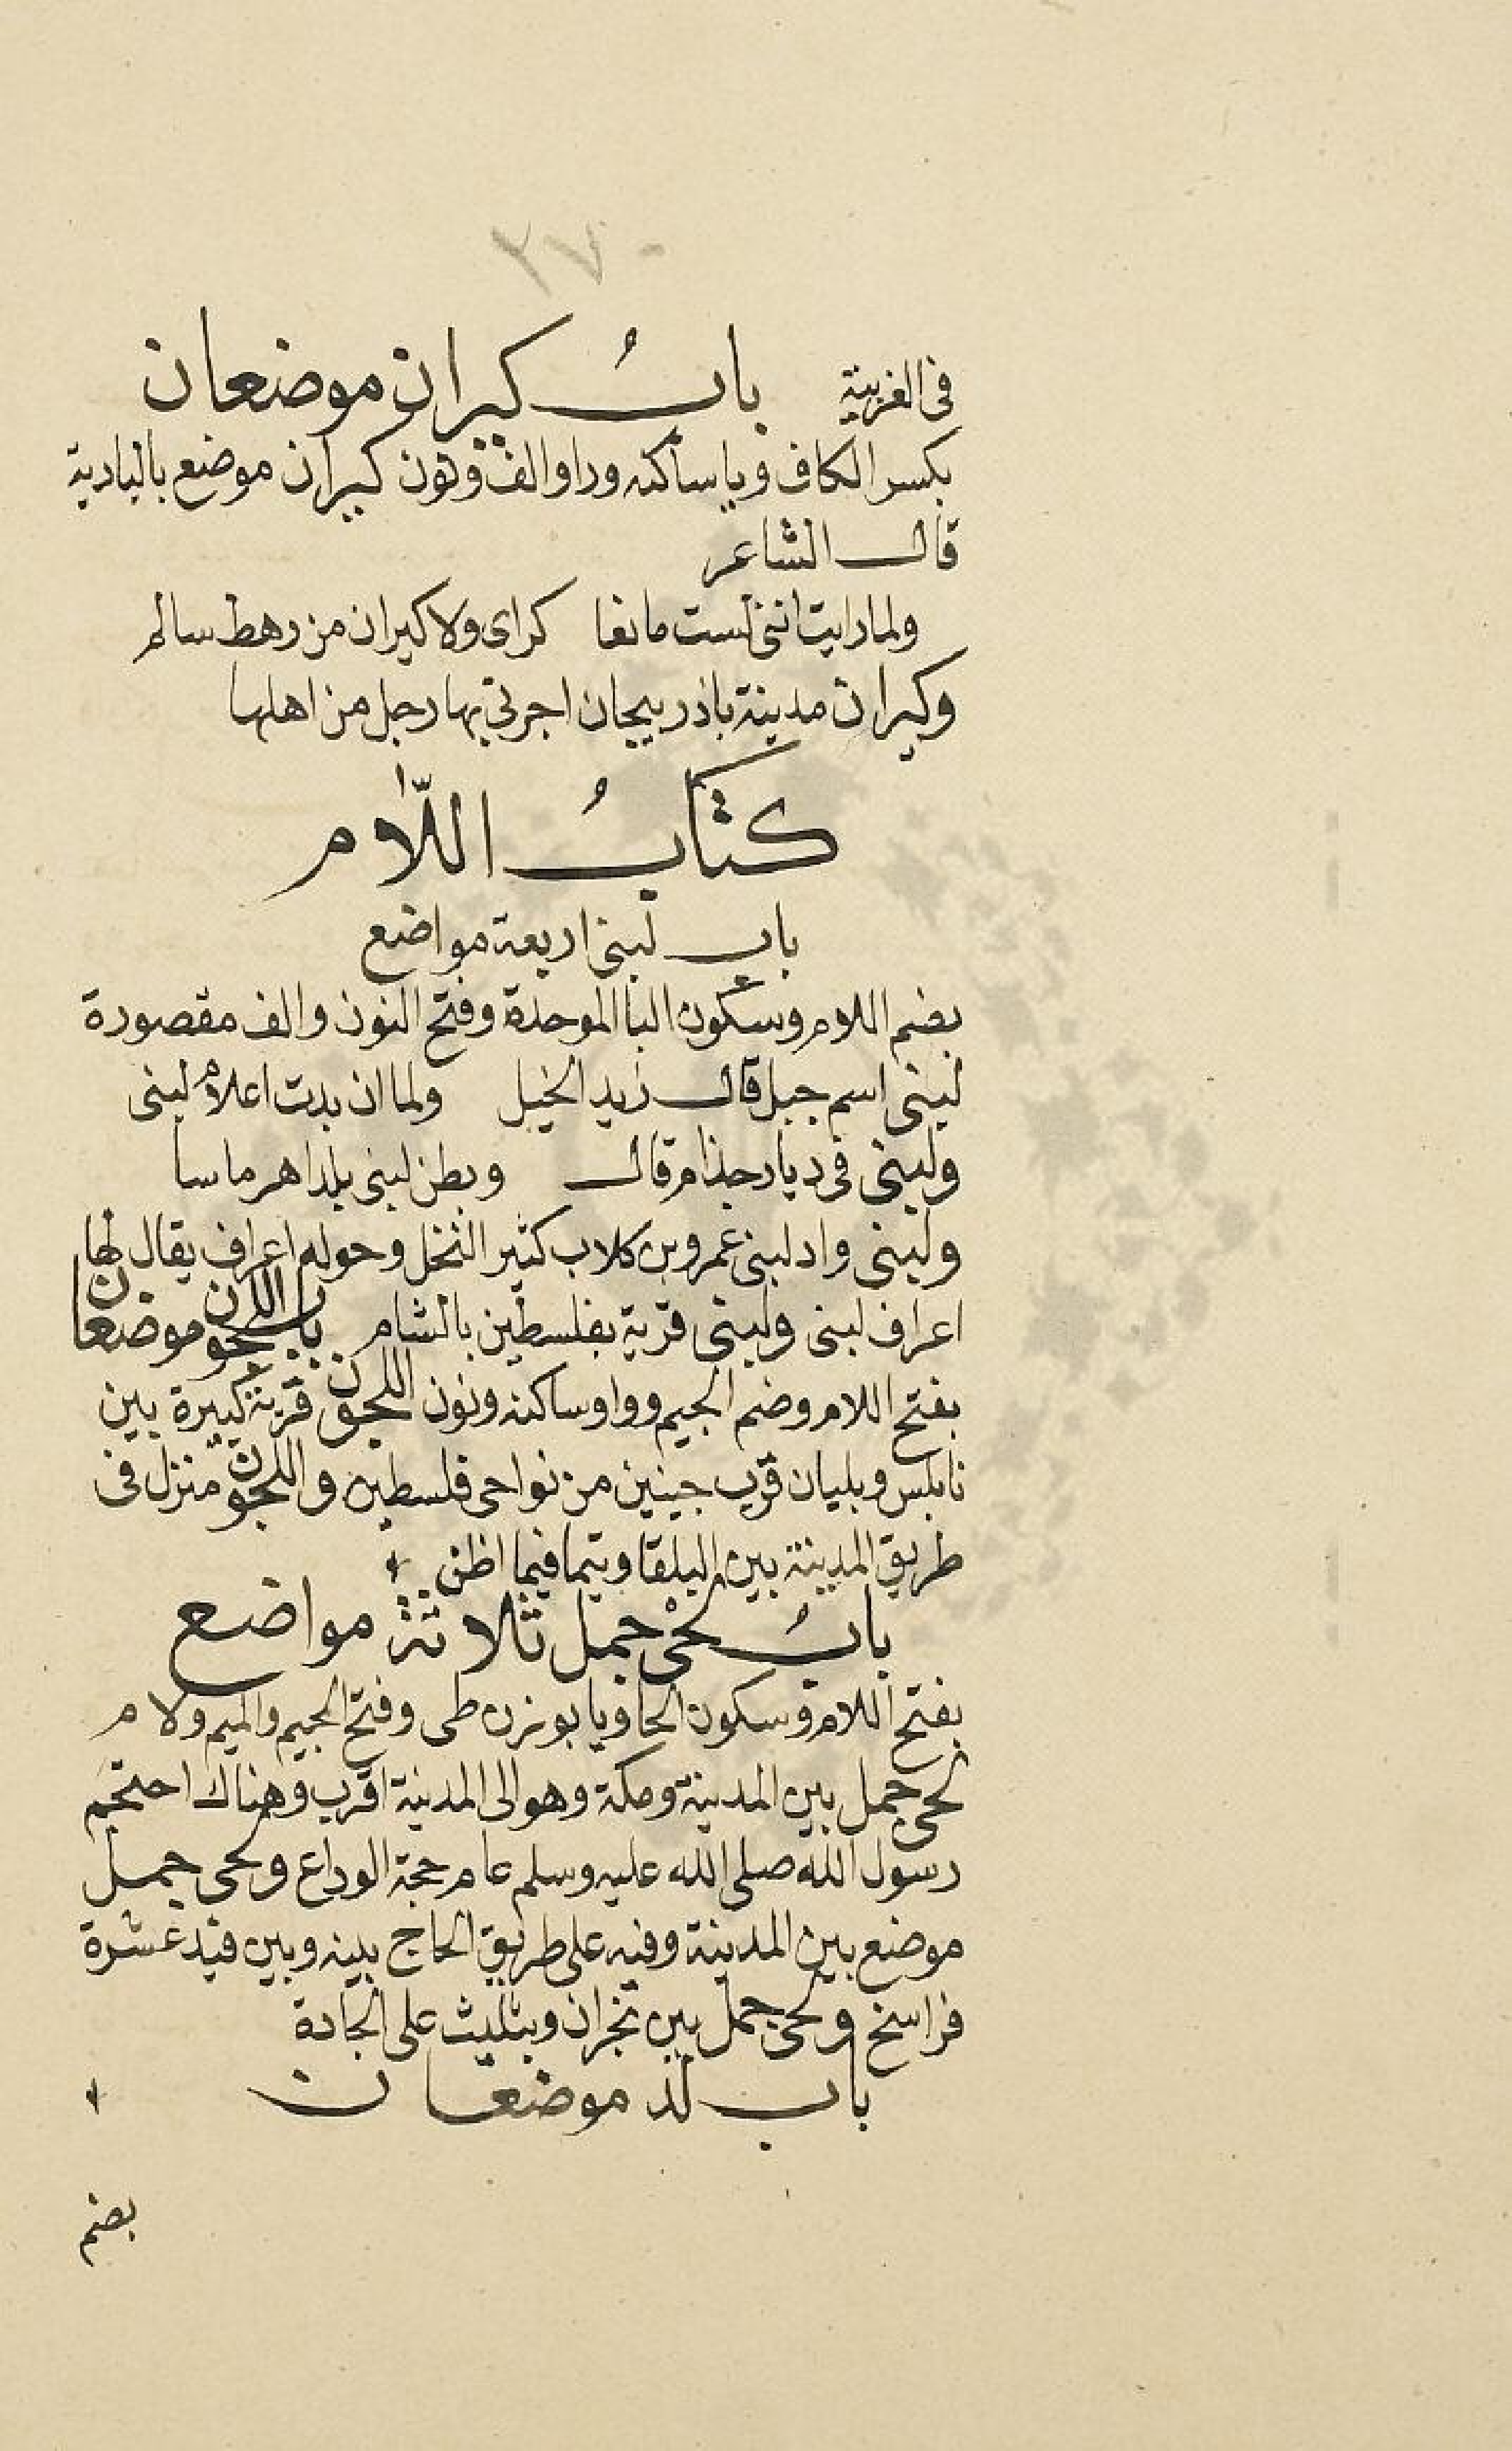 ٢٧٠
في الغربية باب كيران موضعان
بكسر الكاف ويا ساكنه ورا والف ونون كيران موضع بالبادية
قال الشاعر
ولما رايت انني لست مانعا كراى ولا كيران من رهط سالم
وكيران مدينة باذربيجان اخبرني بها رجل من اهلها
كتابُ اللّام
باب لبنى اربعة مواضع
بضم اللام وسكون البا الموحدة وفتح النون والف مقصورة
لبنى اسم جبل قال زيد الخيل ولما ان بدت اعلامُ لبنى
ولبنى في ديار جذام قال وبطن لبنى بلدا هرماسا
ولبنى واد لبنى عمرو بن كلاب كثير النخل وحوله اعراف يقال لها
اعراف لبنى ولبنى قرية بفلسطين بالشام باب اللجون موضعان
بفتح اللام وضم الجيم وواو ساكنه ونون اللجون قرية كبيرة بين
نابلس وبليان قرب جينين من نواحى فلسطين واللجون منزل في
طريق المدينة بين البلقا وتيما فيما اظن
بابُ لحْى جمل ثلاثة مواضع
بفتح اللام وسكون الحا ويا بوزن طى وفتح الجيم والميم ولام
لحى جمل بين المدينة ومكة وهو الى المدينة اقرب وهناك احتجم
رسول الله صلى الله عليه وسلم عام حجة الوداع ولحى جمل
موضع بين المدينة وفيد على طريق الحاج بينه وبين فيد عشرة
فراسخ ولحى جمل بين نجران وتثليث على الجادة
باب لد موضعان
بضم